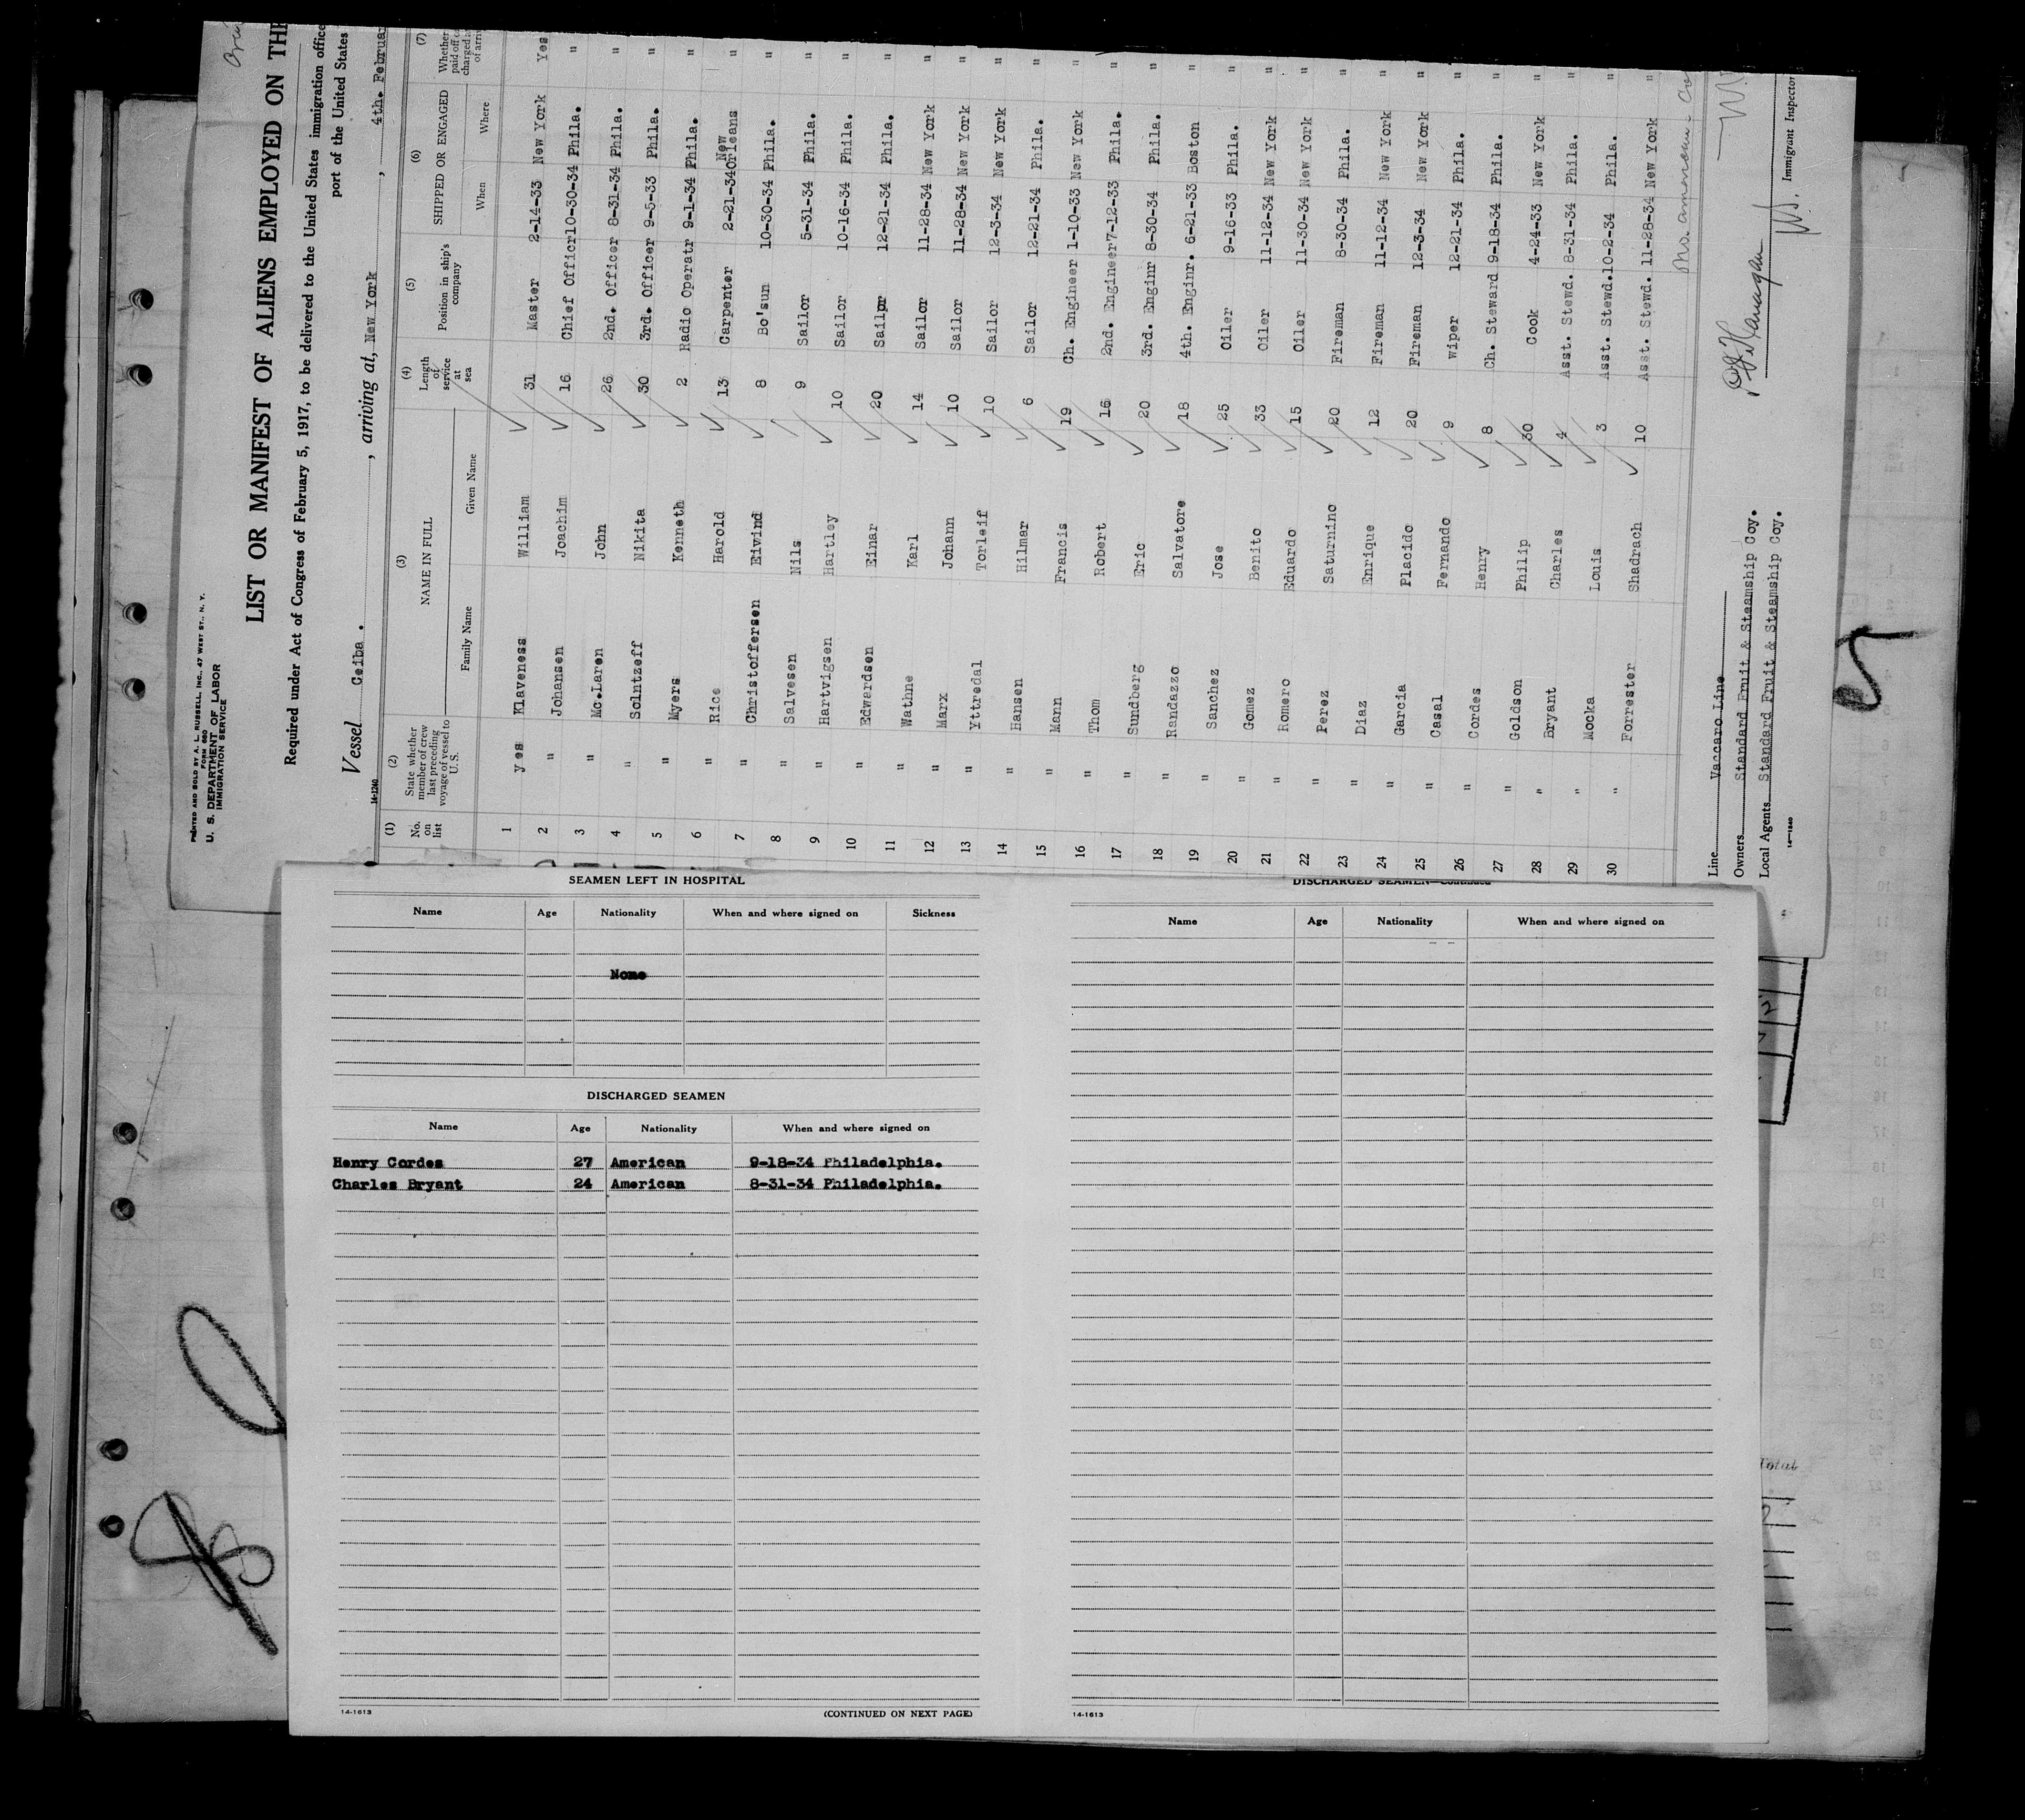 PRINTED AND SOLD BY A. L. RUSSELL, INC., 47 WEST ST., N. Y.
FORM 680
U. S. DEPARTMENT OF LABOR
IMMIGRATION SERVICE
LIST OR MANIFEST OF ALIENS EMPLOYED ON THE
Required under Act of Congress of February 5, 1917, to be delivered to the United States immigration office
port of the United States
Vessel Ceiba. , arriving at, New York , 4th. Februar
14-1240
(1) (2) (3) (4) (5) (6) (7)
No. on list State whether member of crew last preceding voyage of vessel to U. S. NAME IN FULL Length of service at sea Position in ship's company SHIPPED OR ENGAGED Whether paid off
Family Name Given Name When Where
1 yes Klaveness William 31 Master 2-14-33 New York Yes
2 " Johansen Joachim 16 Chief Officr 10-30-34 Phila. "
3 " Mc.Laren John 26 2nd. Officer 8-31-34 Phila. "
4 " Solntzeff Nikita 30 3rd. Officer 9-5-33 Phila. "
5 " Myers Kenneth 2 Radio Operatr 9-1-34 Phila. "
6 " Rice Harold 13 Carpenter 2-21-34 New Orleans "
7 " Christoffersen Eivind 8 Bo'sun 10-30-34 Phila. "
8 " Salvesen Nils 9 Sailor 5-31-34 Phila. "
9 " Hartvigsen Hartley 10 Sailor 10-16-34 Phila. "
10 " Edwardsen Einar 20 Sailpr 12-21-34 Phila. "
11 " Wathne Karl 14 Sailor 11-28-34 New York "
12 " Marx Johann 10 Sailor 11-28-34 New York "
13 " Yttredal Torleif 10 Sailor 12-3-34 New York "
14 " Hansen Hilmar 6 Sailor 12-21-34 Phila. "
15 " Mann Francis 19 Ch. Engineer 1-10-33 New York "
16 " Thom Robert 16 2nd. Engineer 7-12-33 Phila. "
17 " Sundberg Eric 20 3rd. Enginr 8-30-34 Phila. "
18 " Randazzo Salvatore 18 4th. Enginr. 6-21-33 Boston "
19 " Sanchez Jose 25 Oiler 9-16-33 Phila. "
20 " Gomez Benito 33 Oiler 11-12-34 New York "
21 " Romero Eduardo 15 Oiler 11-30-34 New York "
22 " Perez Saturnino 20 Fireman 8-30-34 Phila. "
23 " Diaz Enrique 12 Fireman 11-12-34 New York "
24 " Garcia Placido 20 Fireman 12-3-34 New York "
25 " Casal Fernando 9 Wiper 12-21-34 Phila. "
26 " Cordes Henry 8 Ch. Steward 9-18-34 Phila. "
27 " Goldson Philip 30 Cook 4-24-33 New York "
28 " Bryant Charles 4 Asst. Stewd. 8-31-34 Phila. "
29 " Mocka Louis 3 Asst. Stewd. 10-2-34 Phila. "
30 " Forrester Shadrach 10 Asst. Stewd. 11-28-34 New York "
Line Vaccaro Line
Owners Standard Fruit & Steamship Coy.
Local Agents Standard Fruit & Steamship Coy.
Immigrant Inspector
14-1240
SEAMEN LEFT IN HOSPITAL
Name Age Nationality When and where signed on Sickness
None
DISCHARGED SEAMEN
Name Age Nationality When and where signed on
Henry Cordes 27 American 9-18-34 Philadelphia.
Charles Bryant 24 American 8-31-34 Philadelphia.
14-1613
(CONTINUED ON NEXT PAGE)
DISCHARGED SEAMEN—Continued
Name Age Nationality When and where signed on
14-1613
Total